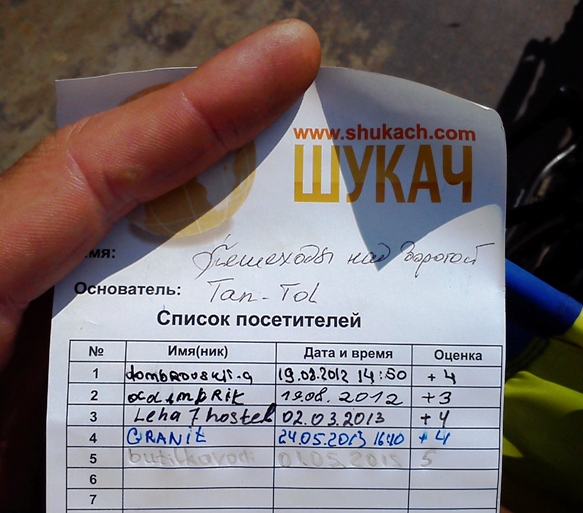 www.shukach.com
ШУКАЧ
мя: Пешеходы над дорогой
Основатель: Tan-Tol
Список посетителей
№ Имя(ник) Дата и время Оценка
1 dombrovski-a 19.08.2012 14:50 +4
2 olimpRik 19.08.2012 +3
3 Leha7hostel 02.03.2013 +4
4 GRANIt 24.05.2013 1640 +4
5 butilkavodi 01.05.2015 5
6
7